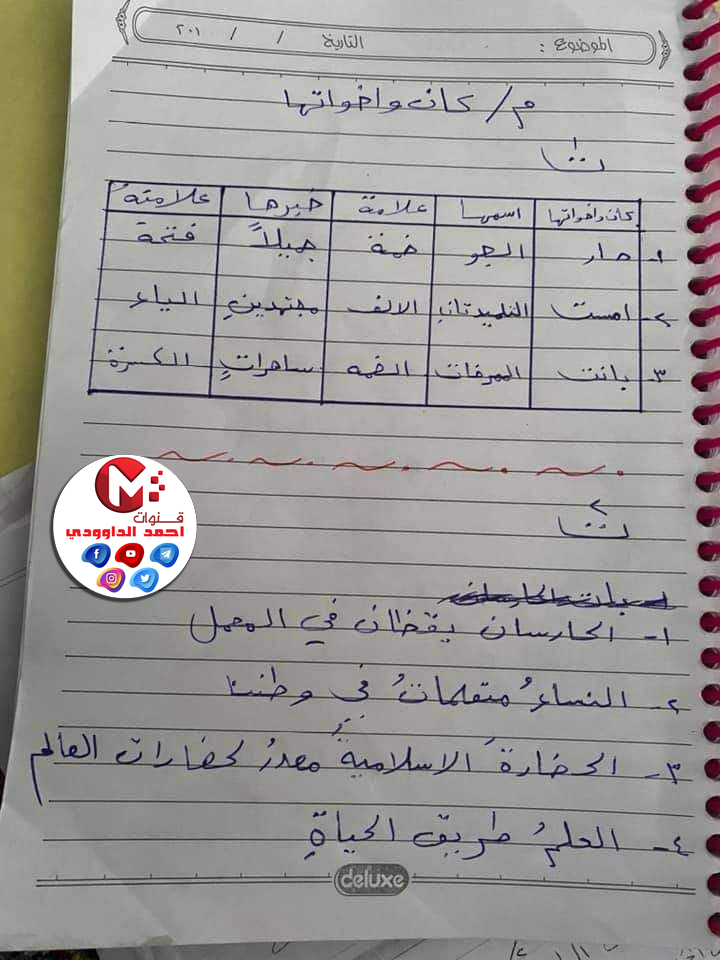 الموضوع : التاريخ / / ٢٠١
م/ كان واخواتها
ت١
كان واخواتها اسمها علامة خبرها علامته
١- صار الجو ضمة جميلاً فتحة
٢- امست التلميدتانِ الالف مجتهدينِ الياء
٣- باتت الممرضات الضمه ساهراتٍ الكسرة
M
قنوات
احمد الداوودي
ت٢
١- الحارسان يقضان في المعمل
٢- النساءُ متعلماتُ في وطننا
٣- الحضارة الاسلامية مصدرُ لحضارات العالم
٤- العلمُ طريق الحياةِ
deluxe